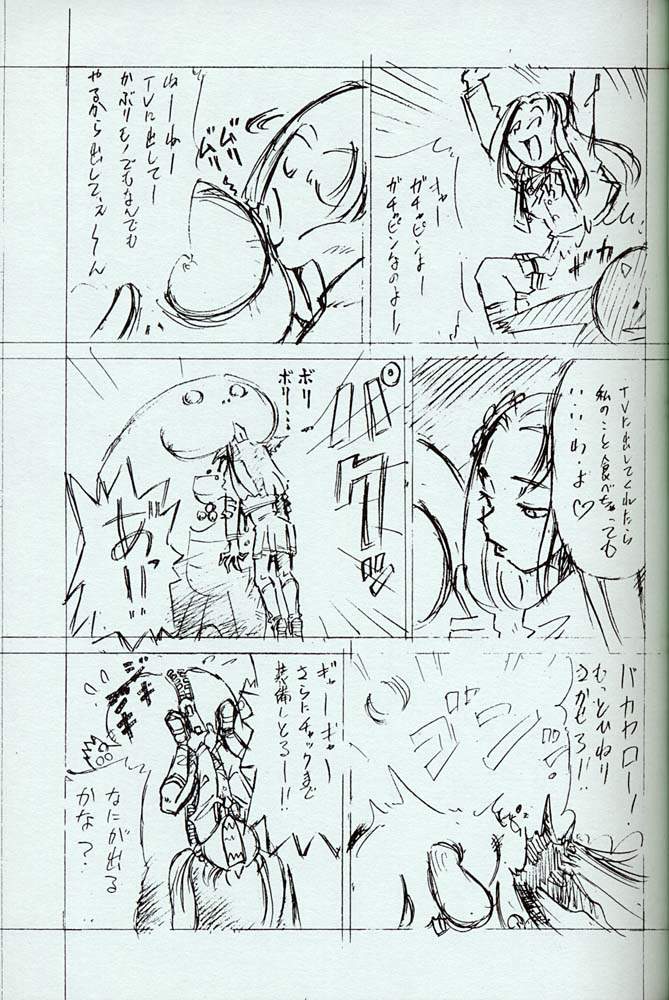 キャー
ガチャピンよー
ガチャピンなのよー!
ギカ
ねーねー
TVに出してー
かぶりモノでもなんでも
やるから出して、ね〜ん
ムリ
ムリ
TVに出してくれたら
私のこと食べちゃっても
い・い・わ・よ♡
バクッ
ボリ
ボリ……
あ!!
バカヤロー!
もっとひねり
きかせろ!!
ゴン
ギャーギャー
さらにチャックまで
装備しとるー!!
ギギギ
なにが出る
かな?